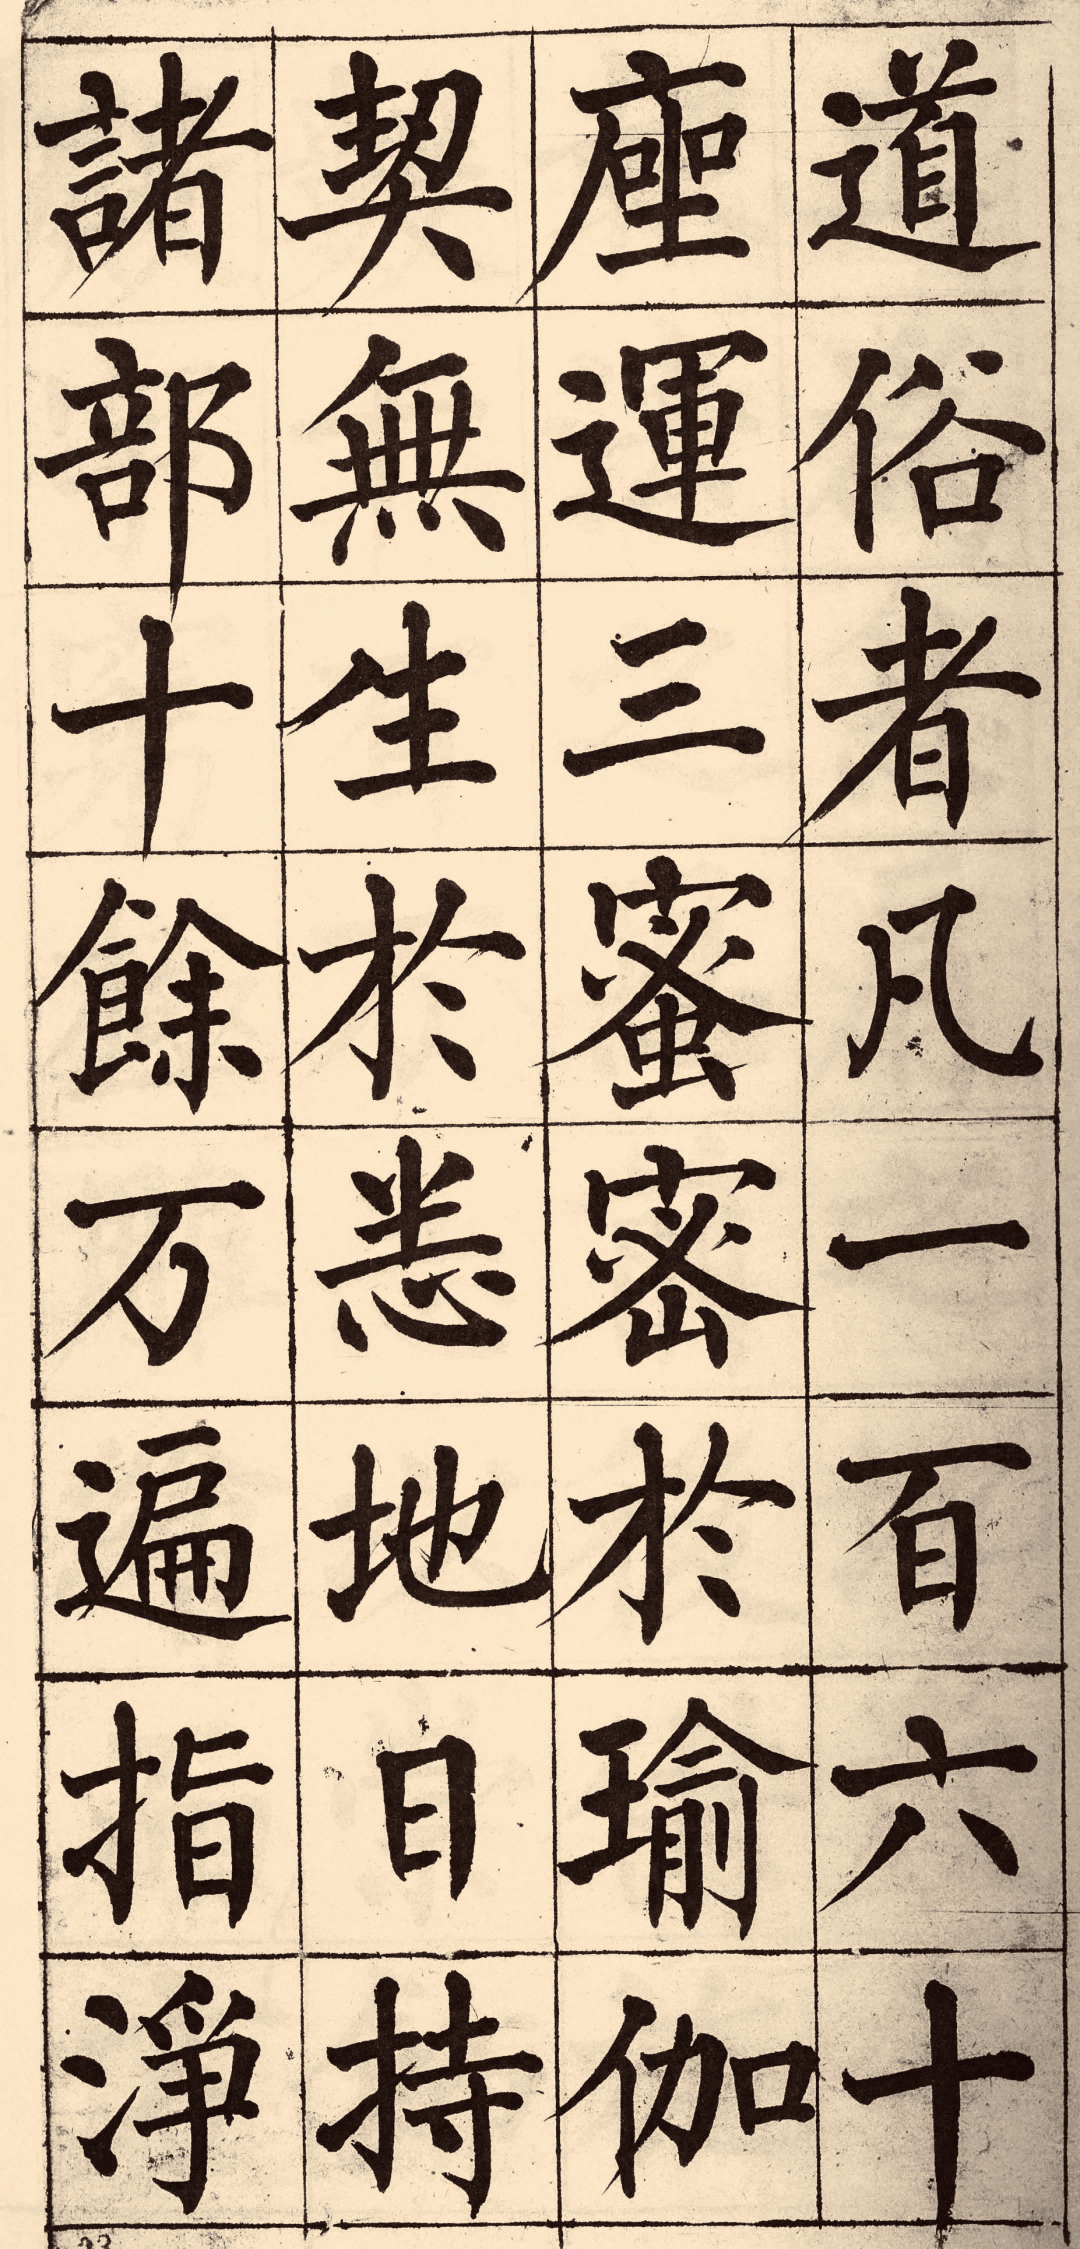 道俗者凡一百六十
座運三蜜密於瑜伽
契無生於悉地日持
諸部十餘万遍指淨